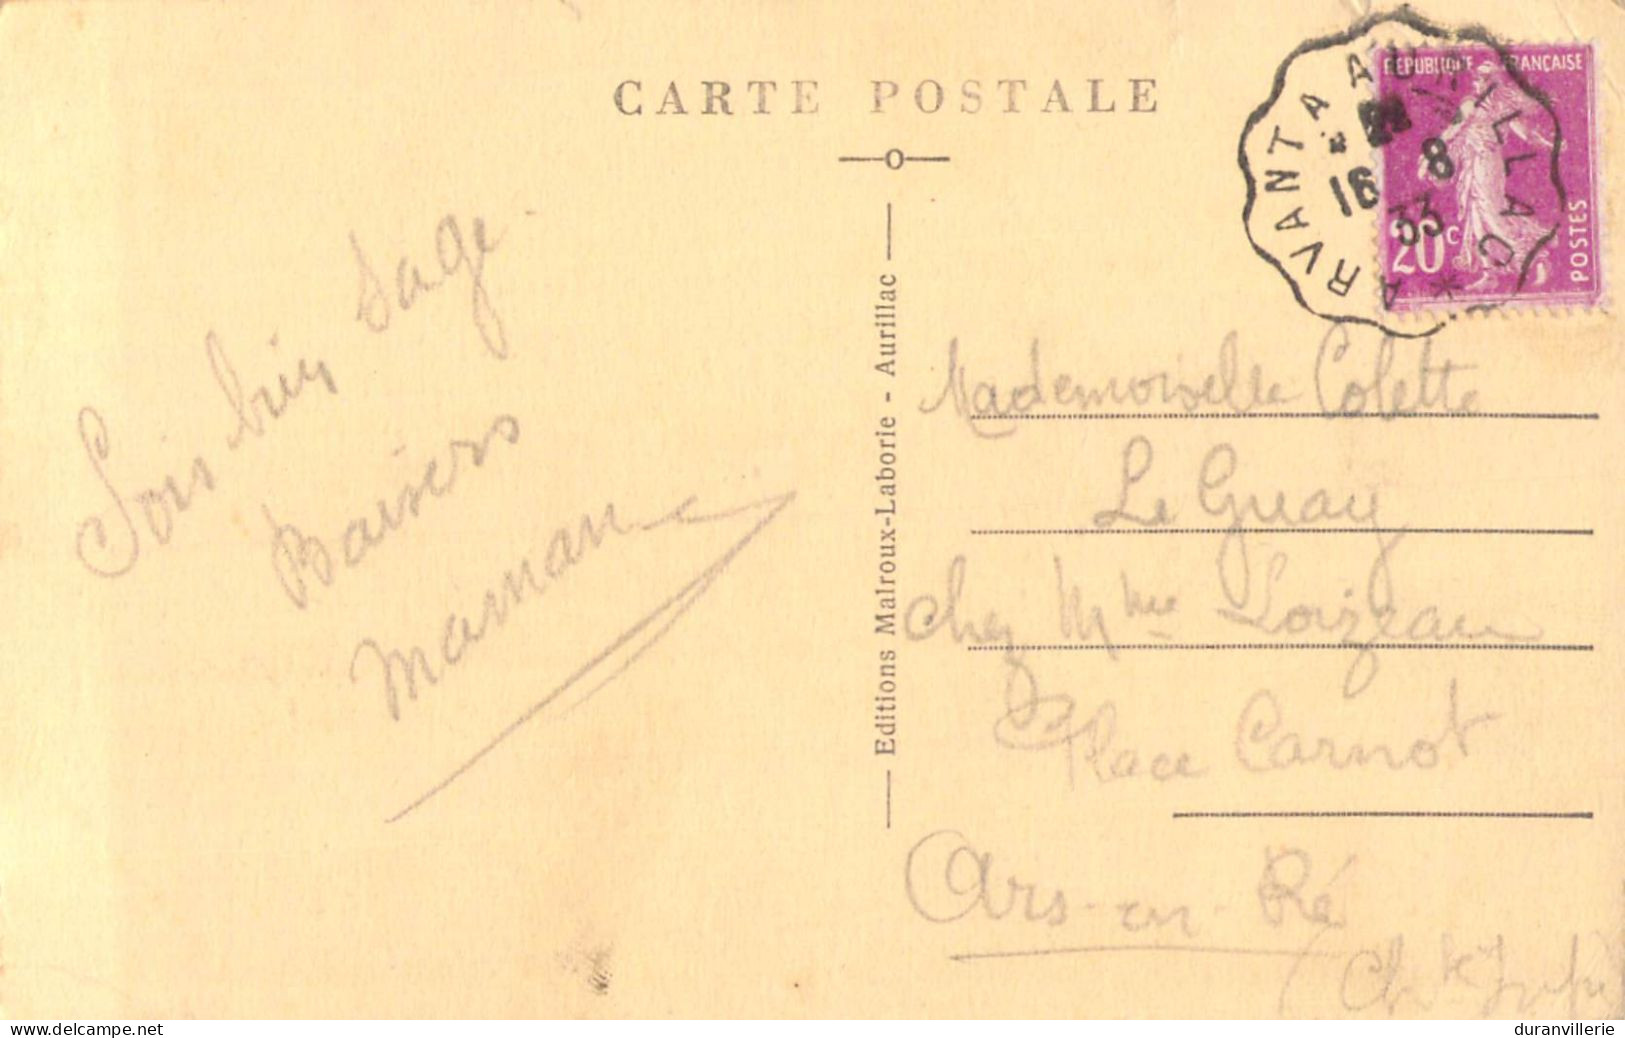 CARTE POSTALE
Sois bien sage.
Baisers
Maman
Editions Malroux-Laborie - Aurillac
RÉPUBLIQUE FRANÇAISE
20c
POSTES
ARVANT A AURILLAC
16 8
33
Mademoiselle Colette
Le Guay
chez Mme Loizeau
Place Carnot
Ars-en-Ré
(Ch
duranvillerie